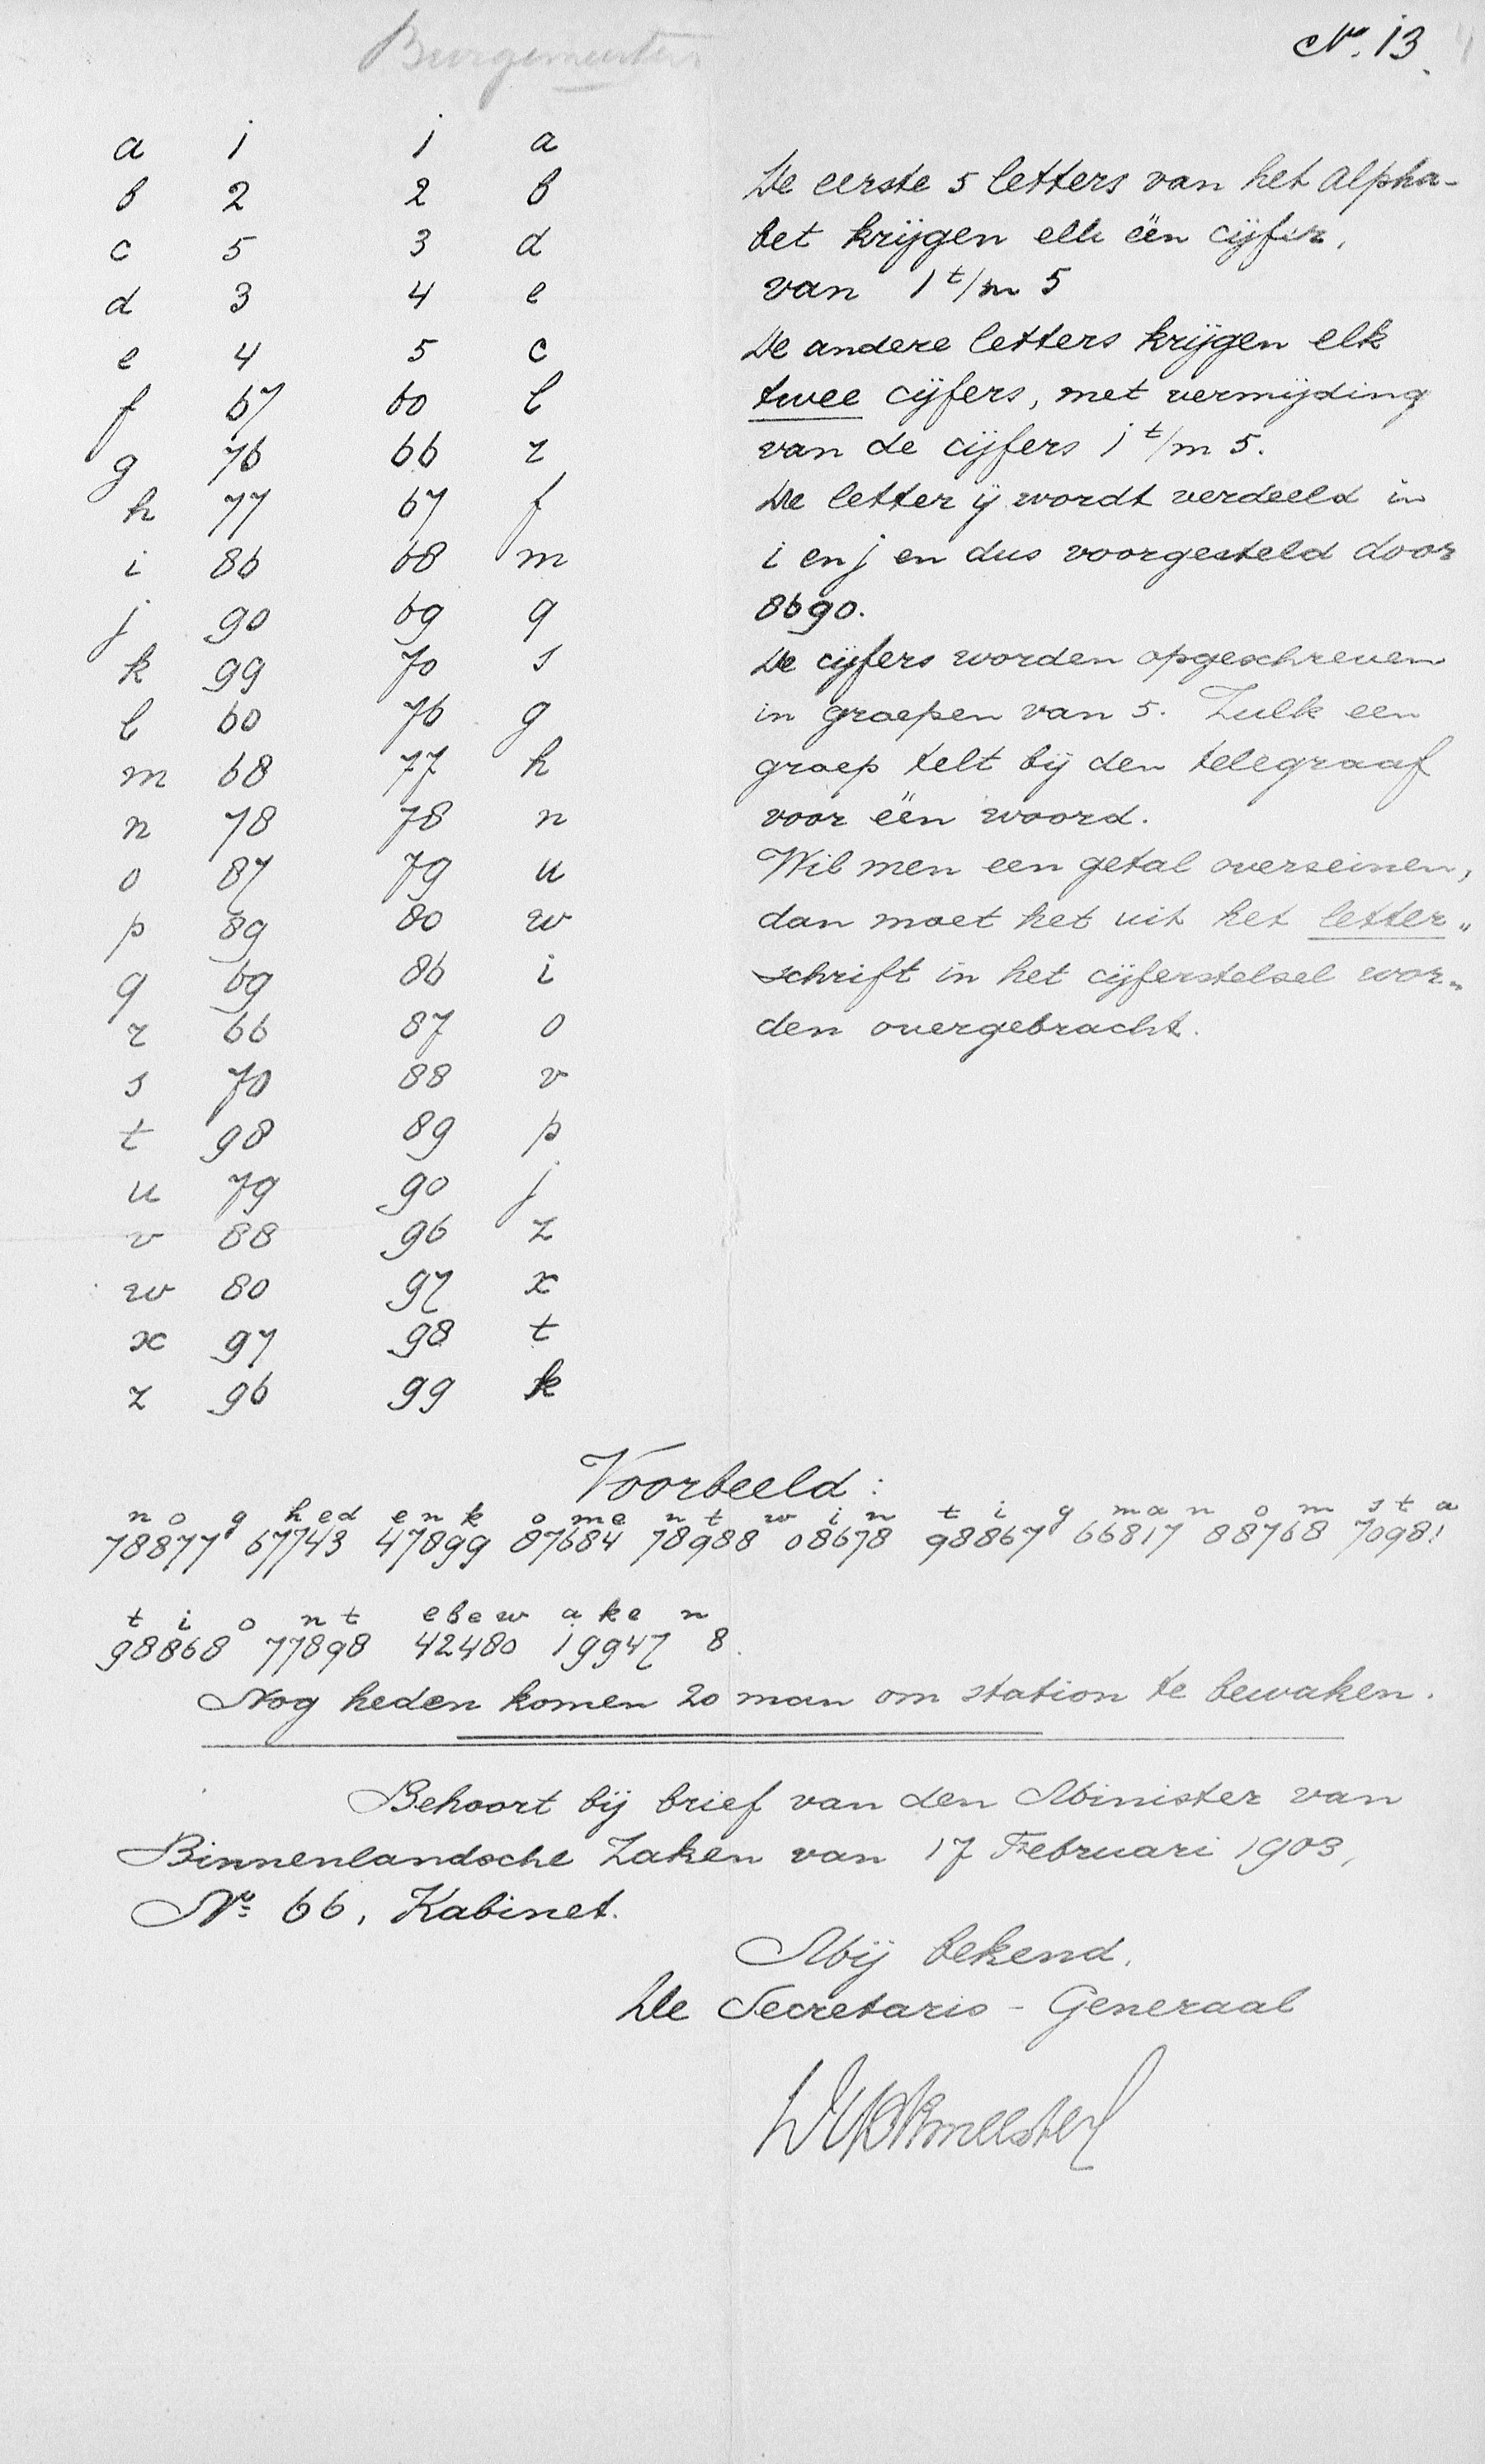 Burgemeester
No. 13.
a 1 1 a
b 2 2 b
c 5 3 d
d 3 4 e
e 4 5 c
f 67 60 l
g 76 66 r
h 77 67 f
i 86 68 m
j 90 69 q
k 99 70 s
l 60 76 g
m 68 77 h
n 78 78 n
o 87 79 u
p 89 80 w
q 69 86 i
r 66 87 o
s 70 88 v
t 98 89 p
u 79 90 j
v 88 96 z
w 80 97 x
x 97 98 t
z 96 99 k
De eerste 5 letters van het alpha-
bet krijgen elk één cijfer,
van 1 t/m 5
De andere letters krijgen elk
twee cijfers, met vermijding
van de cijfers 1 t/m 5.
De letter ij wordt verdeeld in
i en j en dus voorgesteld door
8690.
De cijfers worden opgeschreven
in groepen van 5. Zulk een
groep telt bij den telegraaf
voor één woord.
Wil men een getal overseinen,
dan moet het uit het letter„
schrift in het cijferstelsel wor„
den overgebracht.
Voorbeeld:
n o g h e d e n k o m e n t w i n t i g m a n o m s t a
78877 67743 47899 87684 78988 08678 98867 66817 88768 70981
t i o n t e b e w a k e n
98868 77898 42480 19947 8.
Nog heden komen 20 man om station te bewaken.
Behoort bij brief van den Minister van
Binnenlandsche Zaken van 17 Februari 1903,
No 66, Kabinet.
Mij bekend,
De Secretaris-Generaal